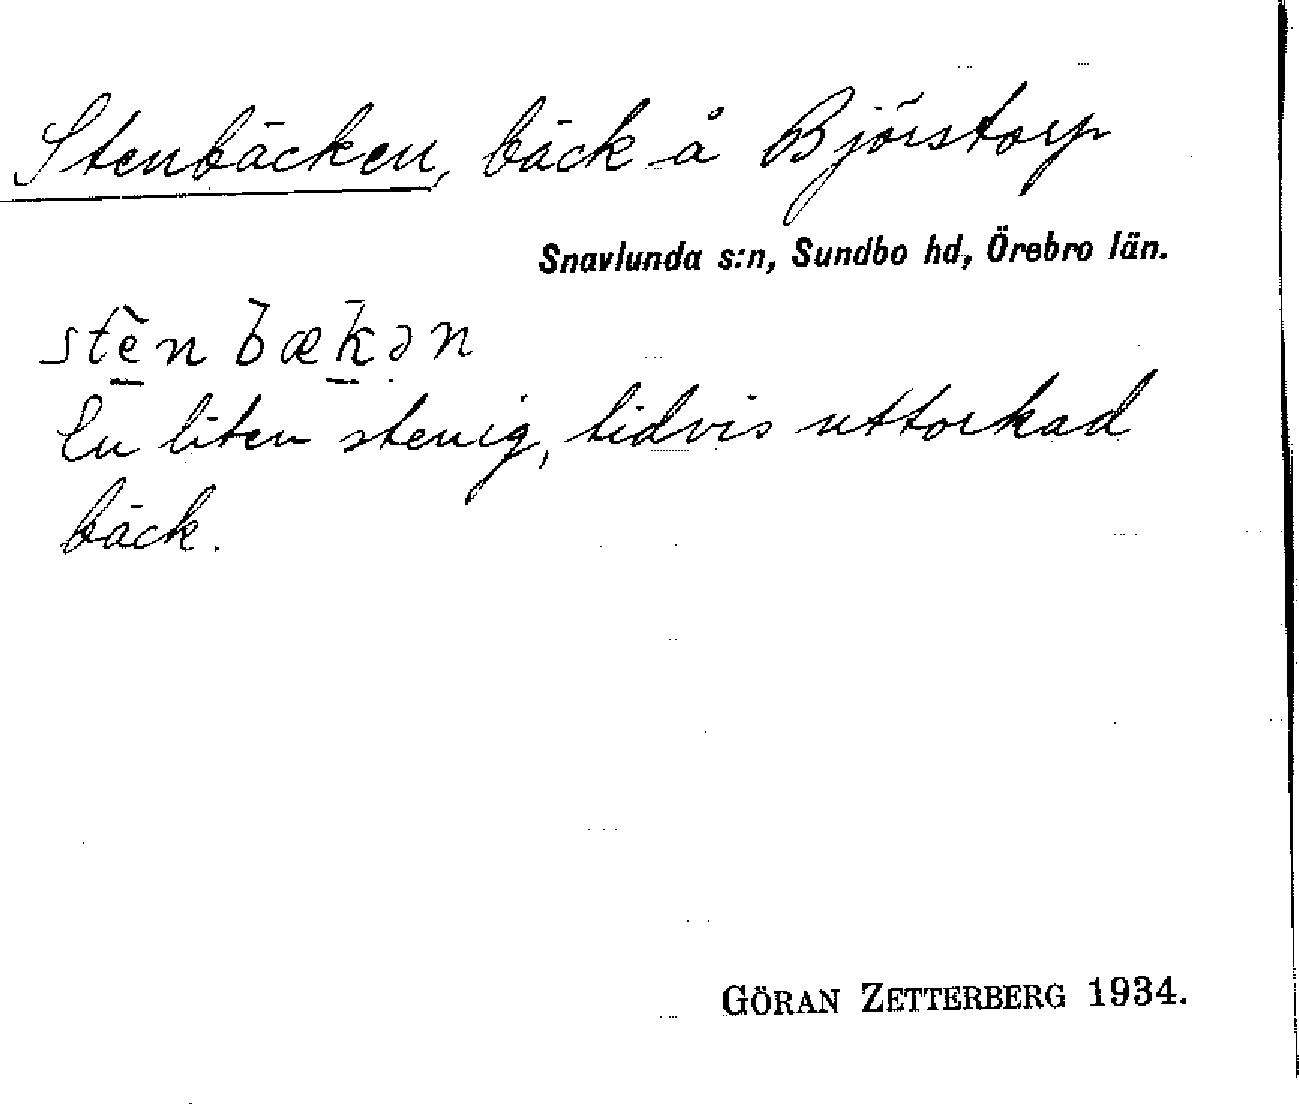 Stenbäcken, bäck å Björstorp
Snavlunda s:n, Sundbo hd, Örebro län.
stèn bækən
En liten stenig, tidvis uttorkad
bäck.
GÖRAN ZETTERBERG 1934.